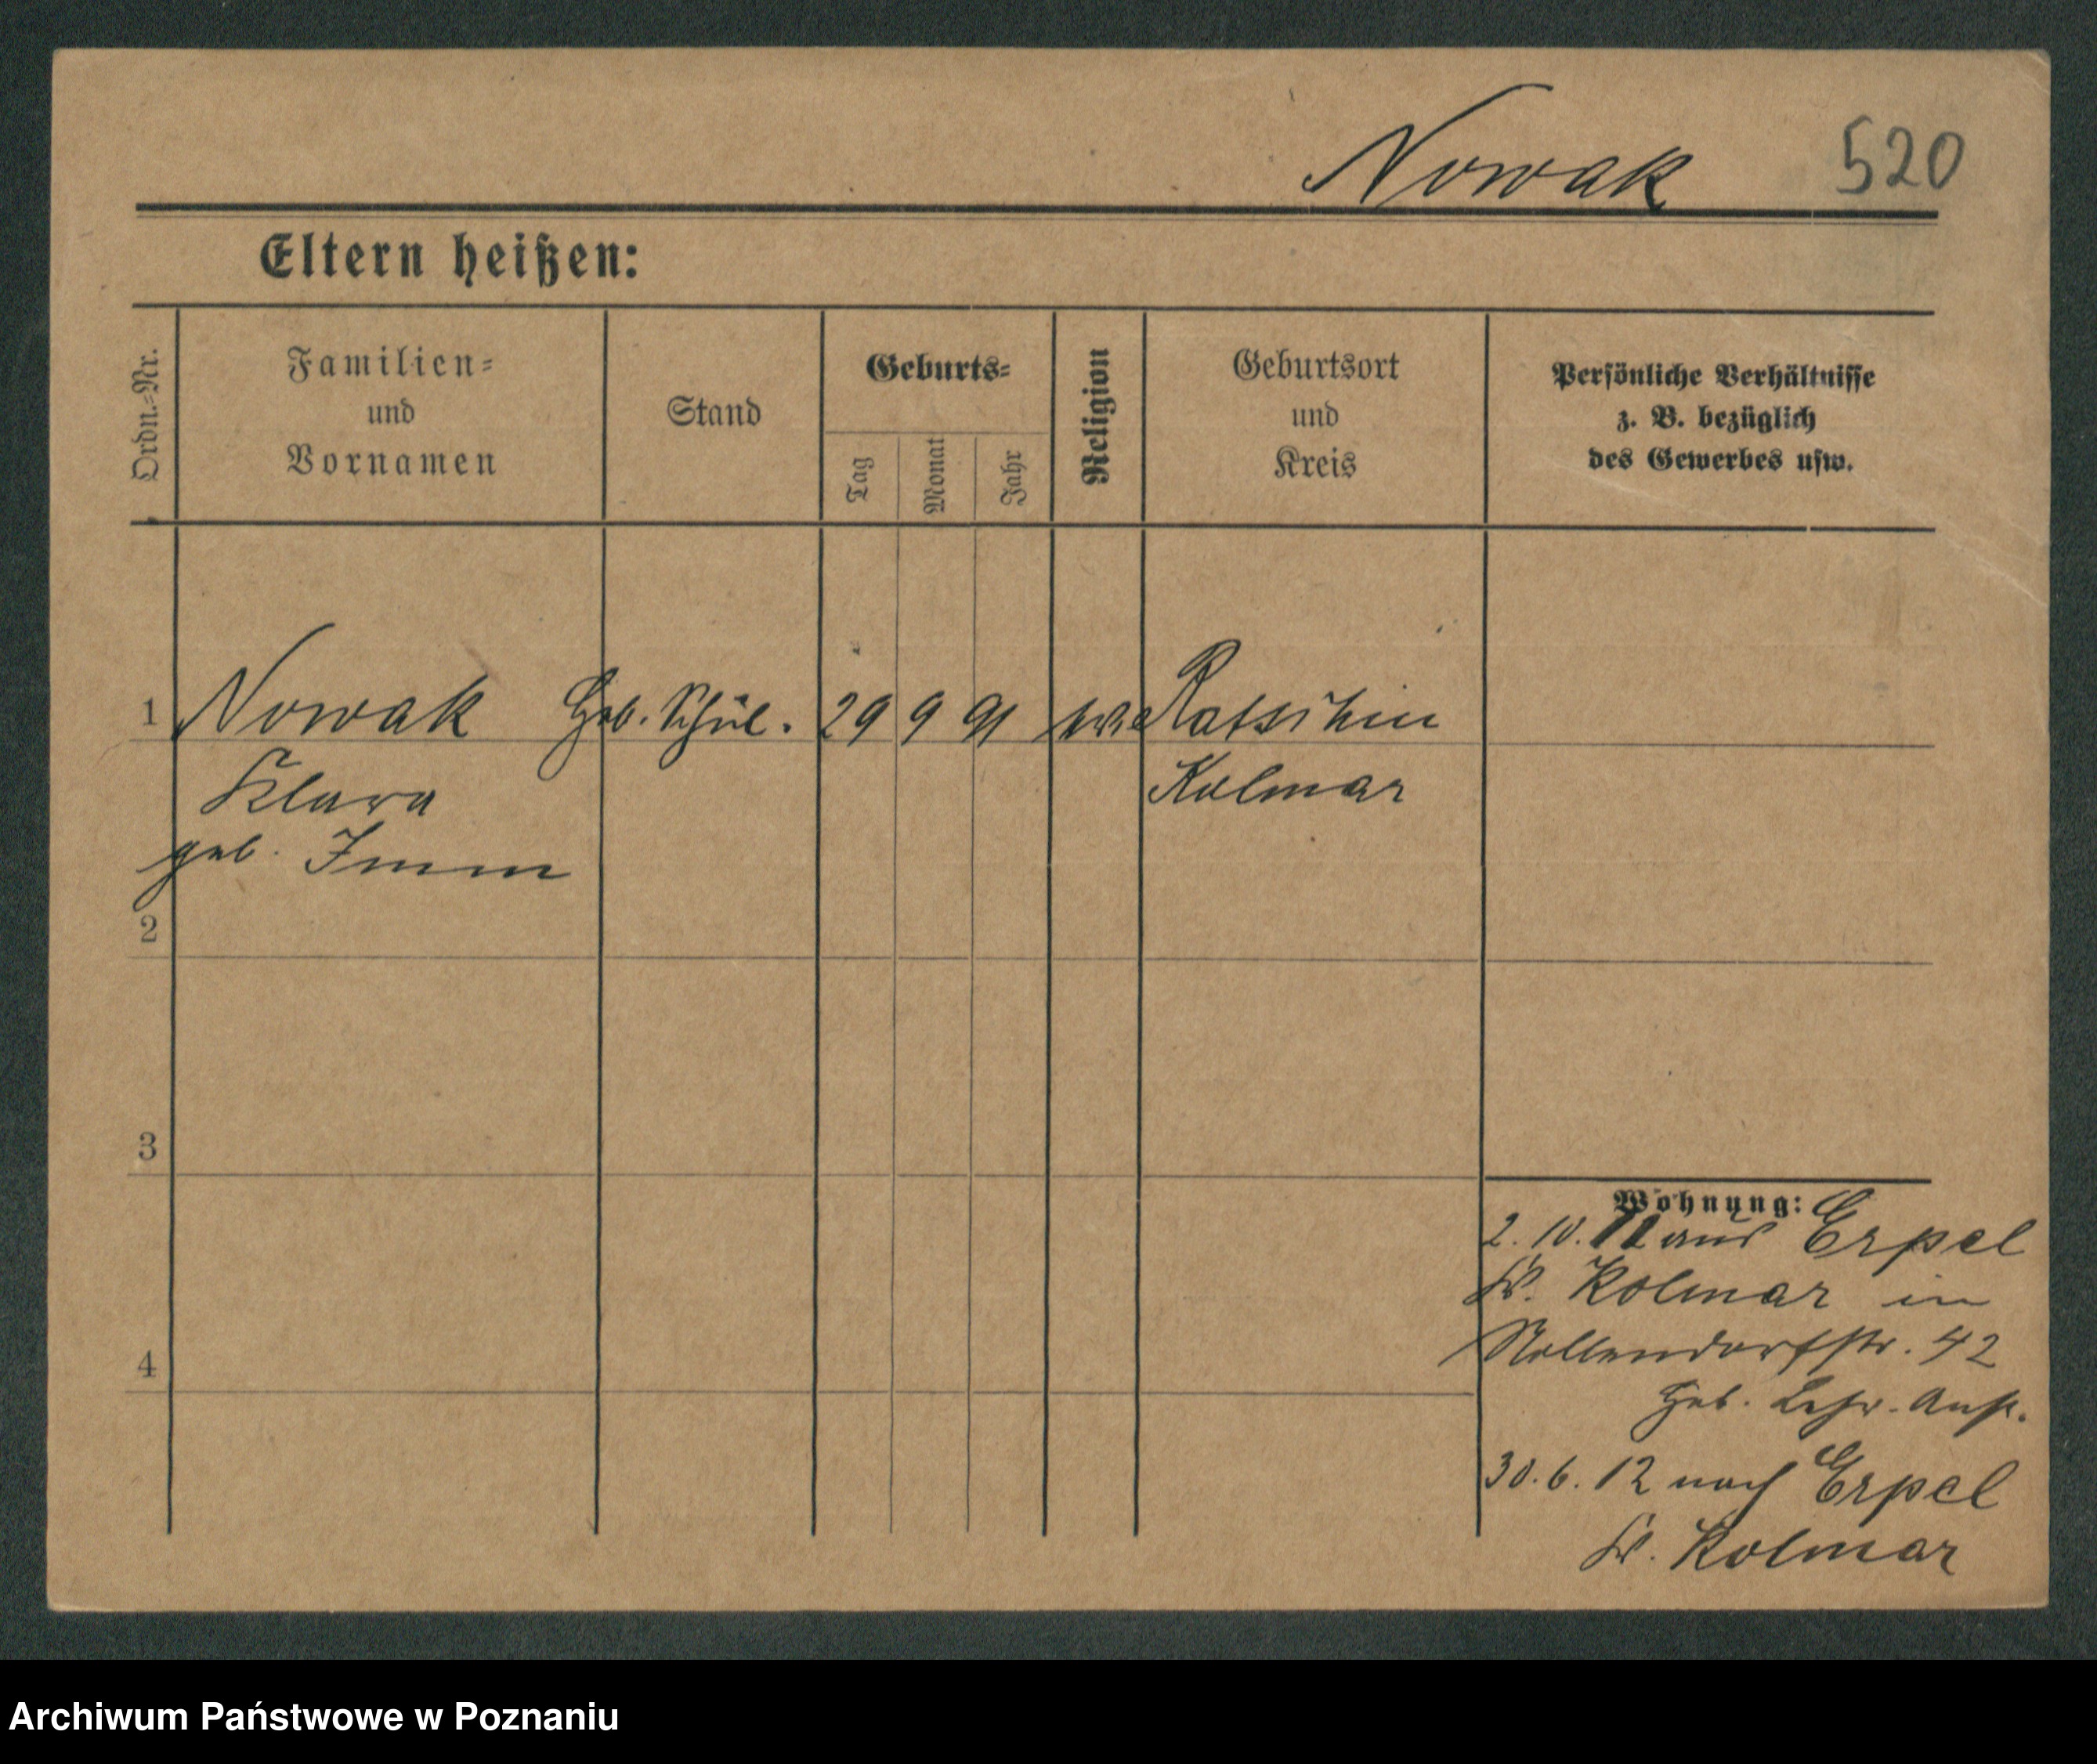 Nowak 520
Eltern heißen:
Ordn.-Nr.
Familien-
und
Vornamen
Stand
Geburts-
Tag
Monat
Jahr
Religion
Geburtsort
und
Kreis
Persönliche Verhältnisse
z. B. bezüglich
des Gewerbes usw.
1 Nowak Heb. Schül. 29 9 91
Klara Kolmar
geb. Imm
2
3
4
Wohnung:
2. 10. 11 aus Erpel
Kr. Kolmar in
Nollendorfstr. 42
Heb. Lehr. Anst.
30. 6. 12 nach Erpel
Kr. Kolmar
Archiwum Państwowe w Poznaniu